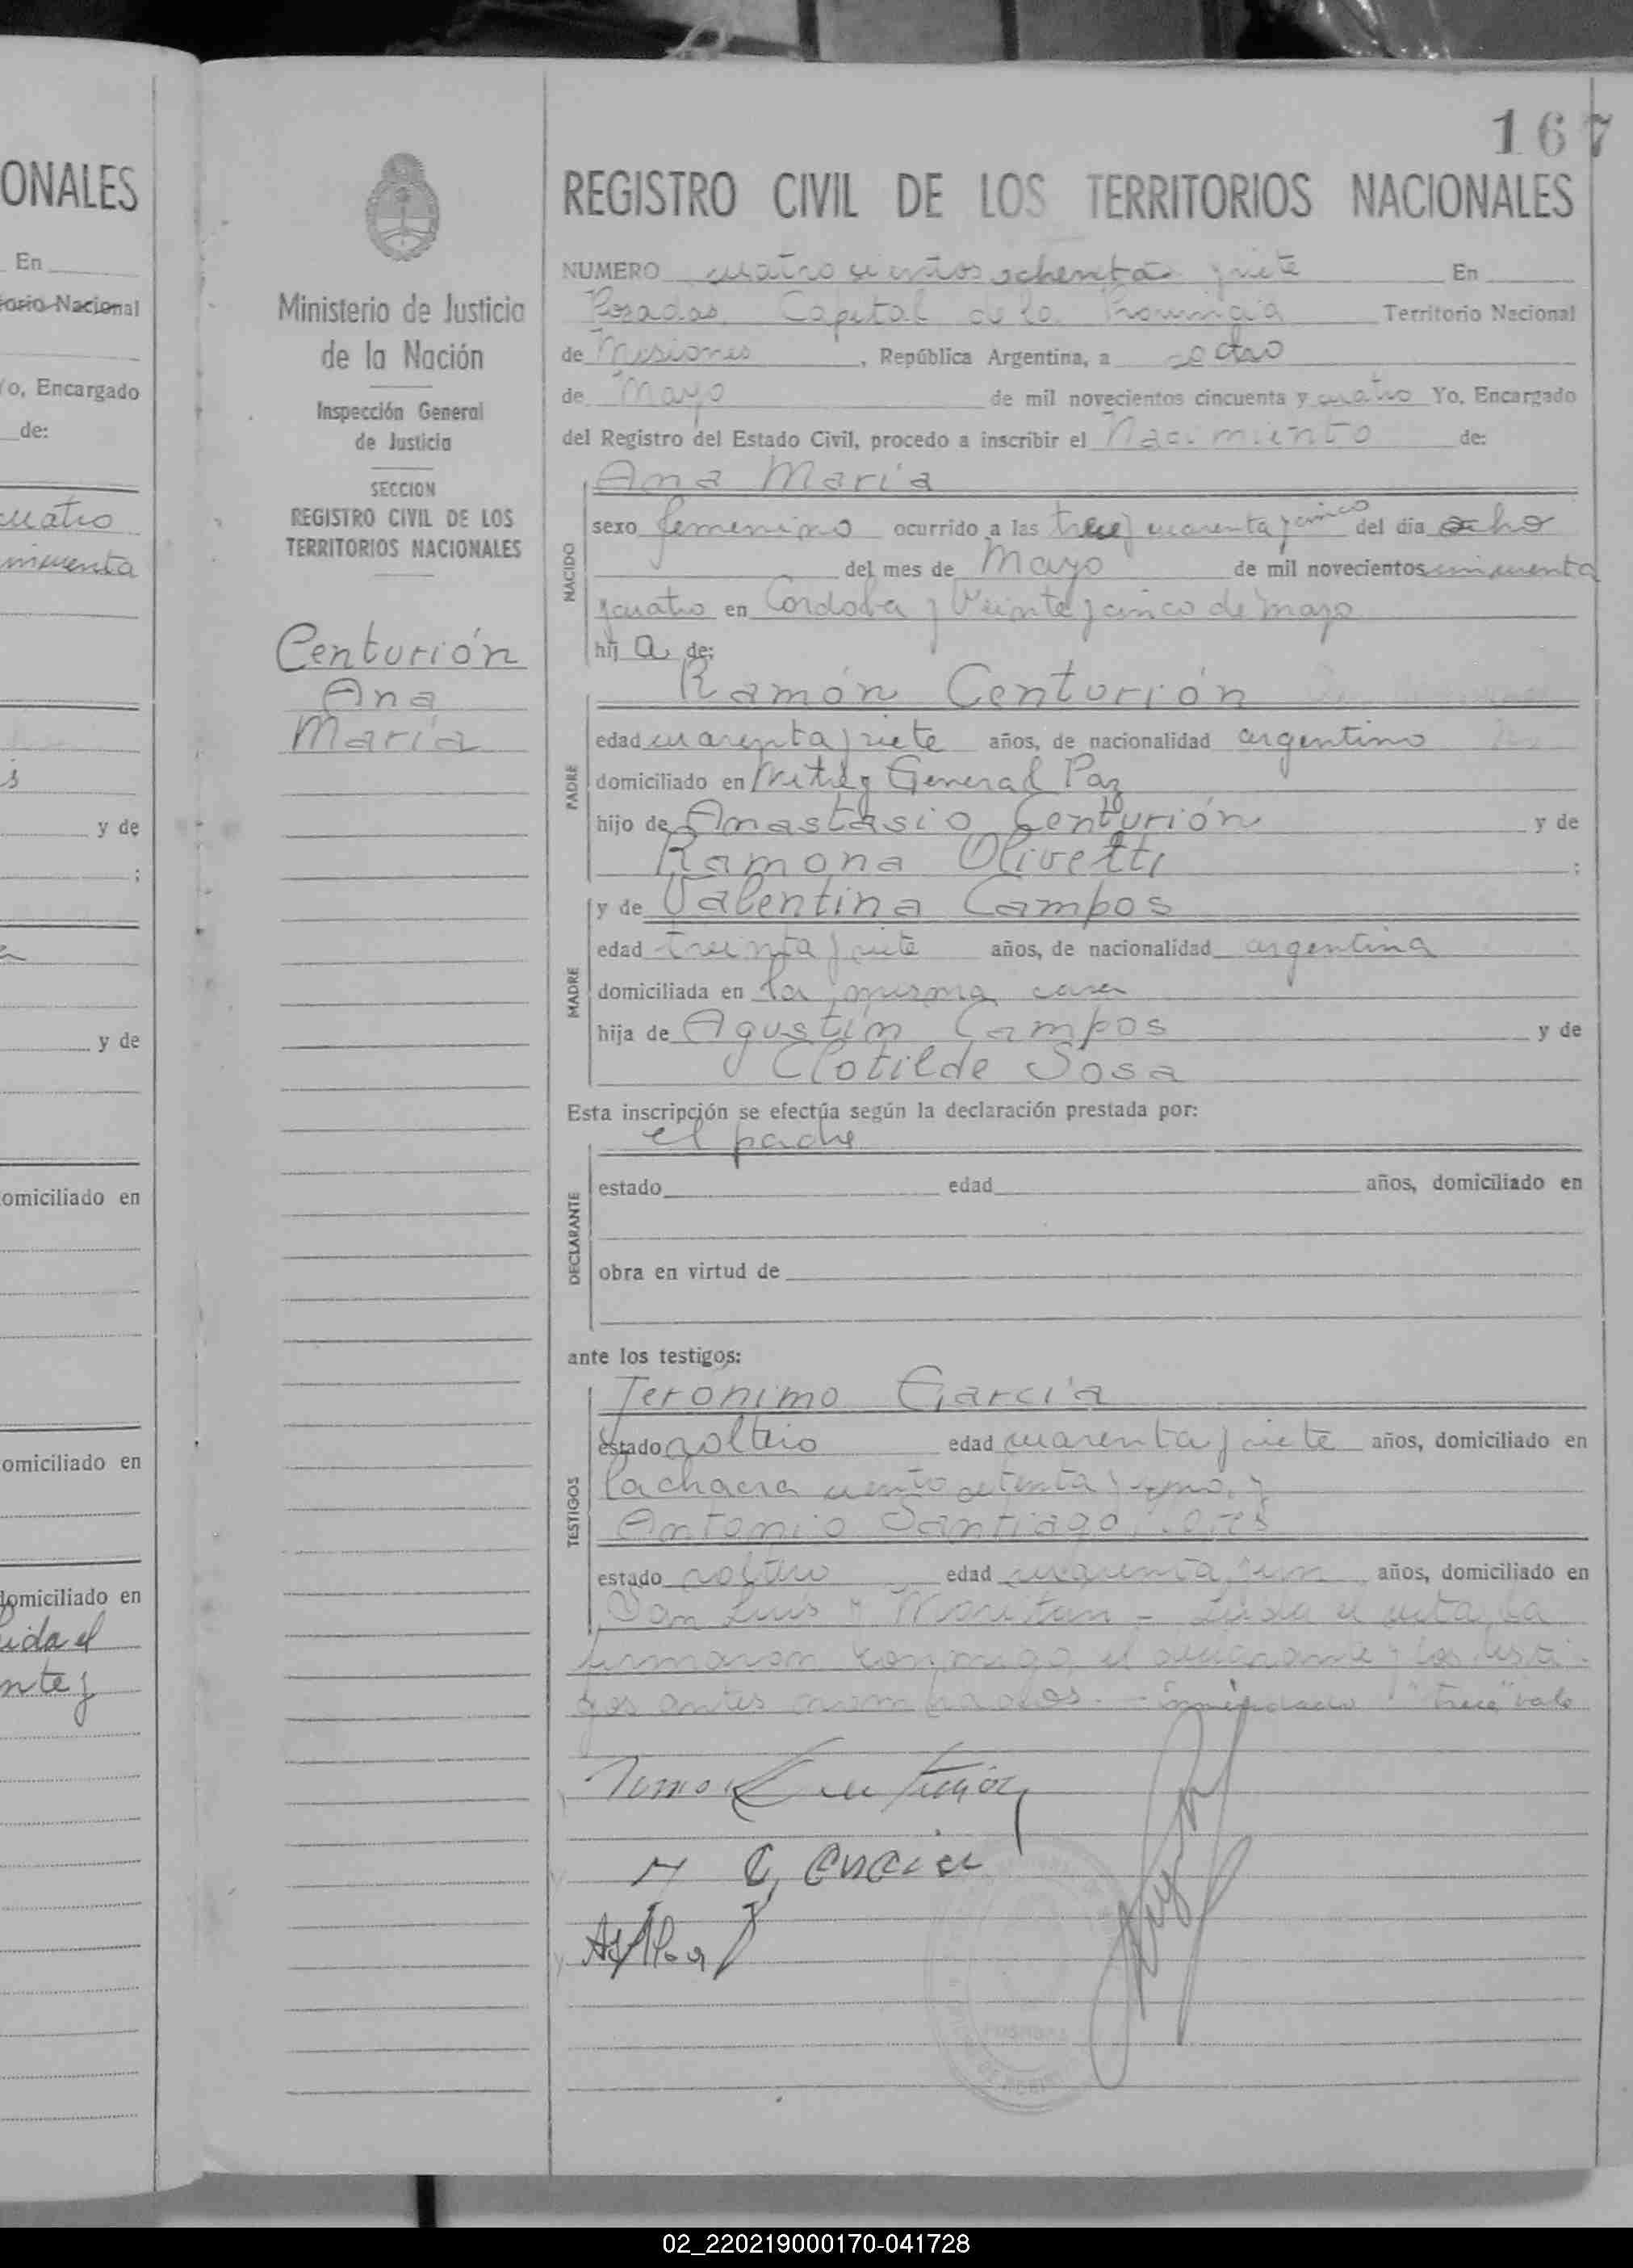 ONALES
En
orio Nacional
o, Encargado
de:
cuatro
y de
y de
omiciliado en
omiciliado en
domiciliado en
eida el
nte y
Ministerio de Justicia
de la Nación
Inspección General
de Justicia
SECCION
REGISTRO CIVIL DE LOS
TERRITORIOS NACIONALES
Centurión
Ana
María
167
REGISTRO CIVIL DE LOS TERRITORIOS NACIONALES
NUMERO cuatrocientos ochenta y siete En
Posadas Capital de la Provincia Territorio Nacional
de Misiones, República Argentina, a ocho
de Mayo de mil novecientos cincuenta y cuatro Yo, Encargado
del Registro del Estado Civil, procedo a inscribir el Nacimiento de:
NACIDO
Ana María
sexo femenino ocurrido a las trece y cuarenta y cinco del día ocho
del mes de Mayo de mil novecientos cincuenta
y cuatro en Córdoba y Veinte y cinco de mayo
hij a de:
PADRE
Ramón Centurión
edad cuarenta y siete años, de nacionalidad argentino
domiciliado en Mitre y General Paz
hijo de Anastasio Centurión y de
Ramona Olivetti ;
MADRE
y de Valentina Campos
edad treinta y siete años, de nacionalidad argentina
domiciliada en la misma casa
hija de Agustín Campos y de
Clotilde Sosa
Esta inscripción se efectúa según la declaración prestada por:
DECLARANTE
el padre
estado edad años, domiciliado en
obra en virtud de
ante los testigos:
TESTIGOS
Jerónimo García
estado soltero edad cuarenta y siete años, domiciliado en
la chacra ciento setenta y uno, y
Antonio Santiago
estado soltero edad cuarenta y un años, domiciliado en
San Luis y - Leída el acta, la
firmaron conmigo el declarante y los testi-
gos antes nombrados. - Enmendado: "trece" vale
02_220219000170-041728